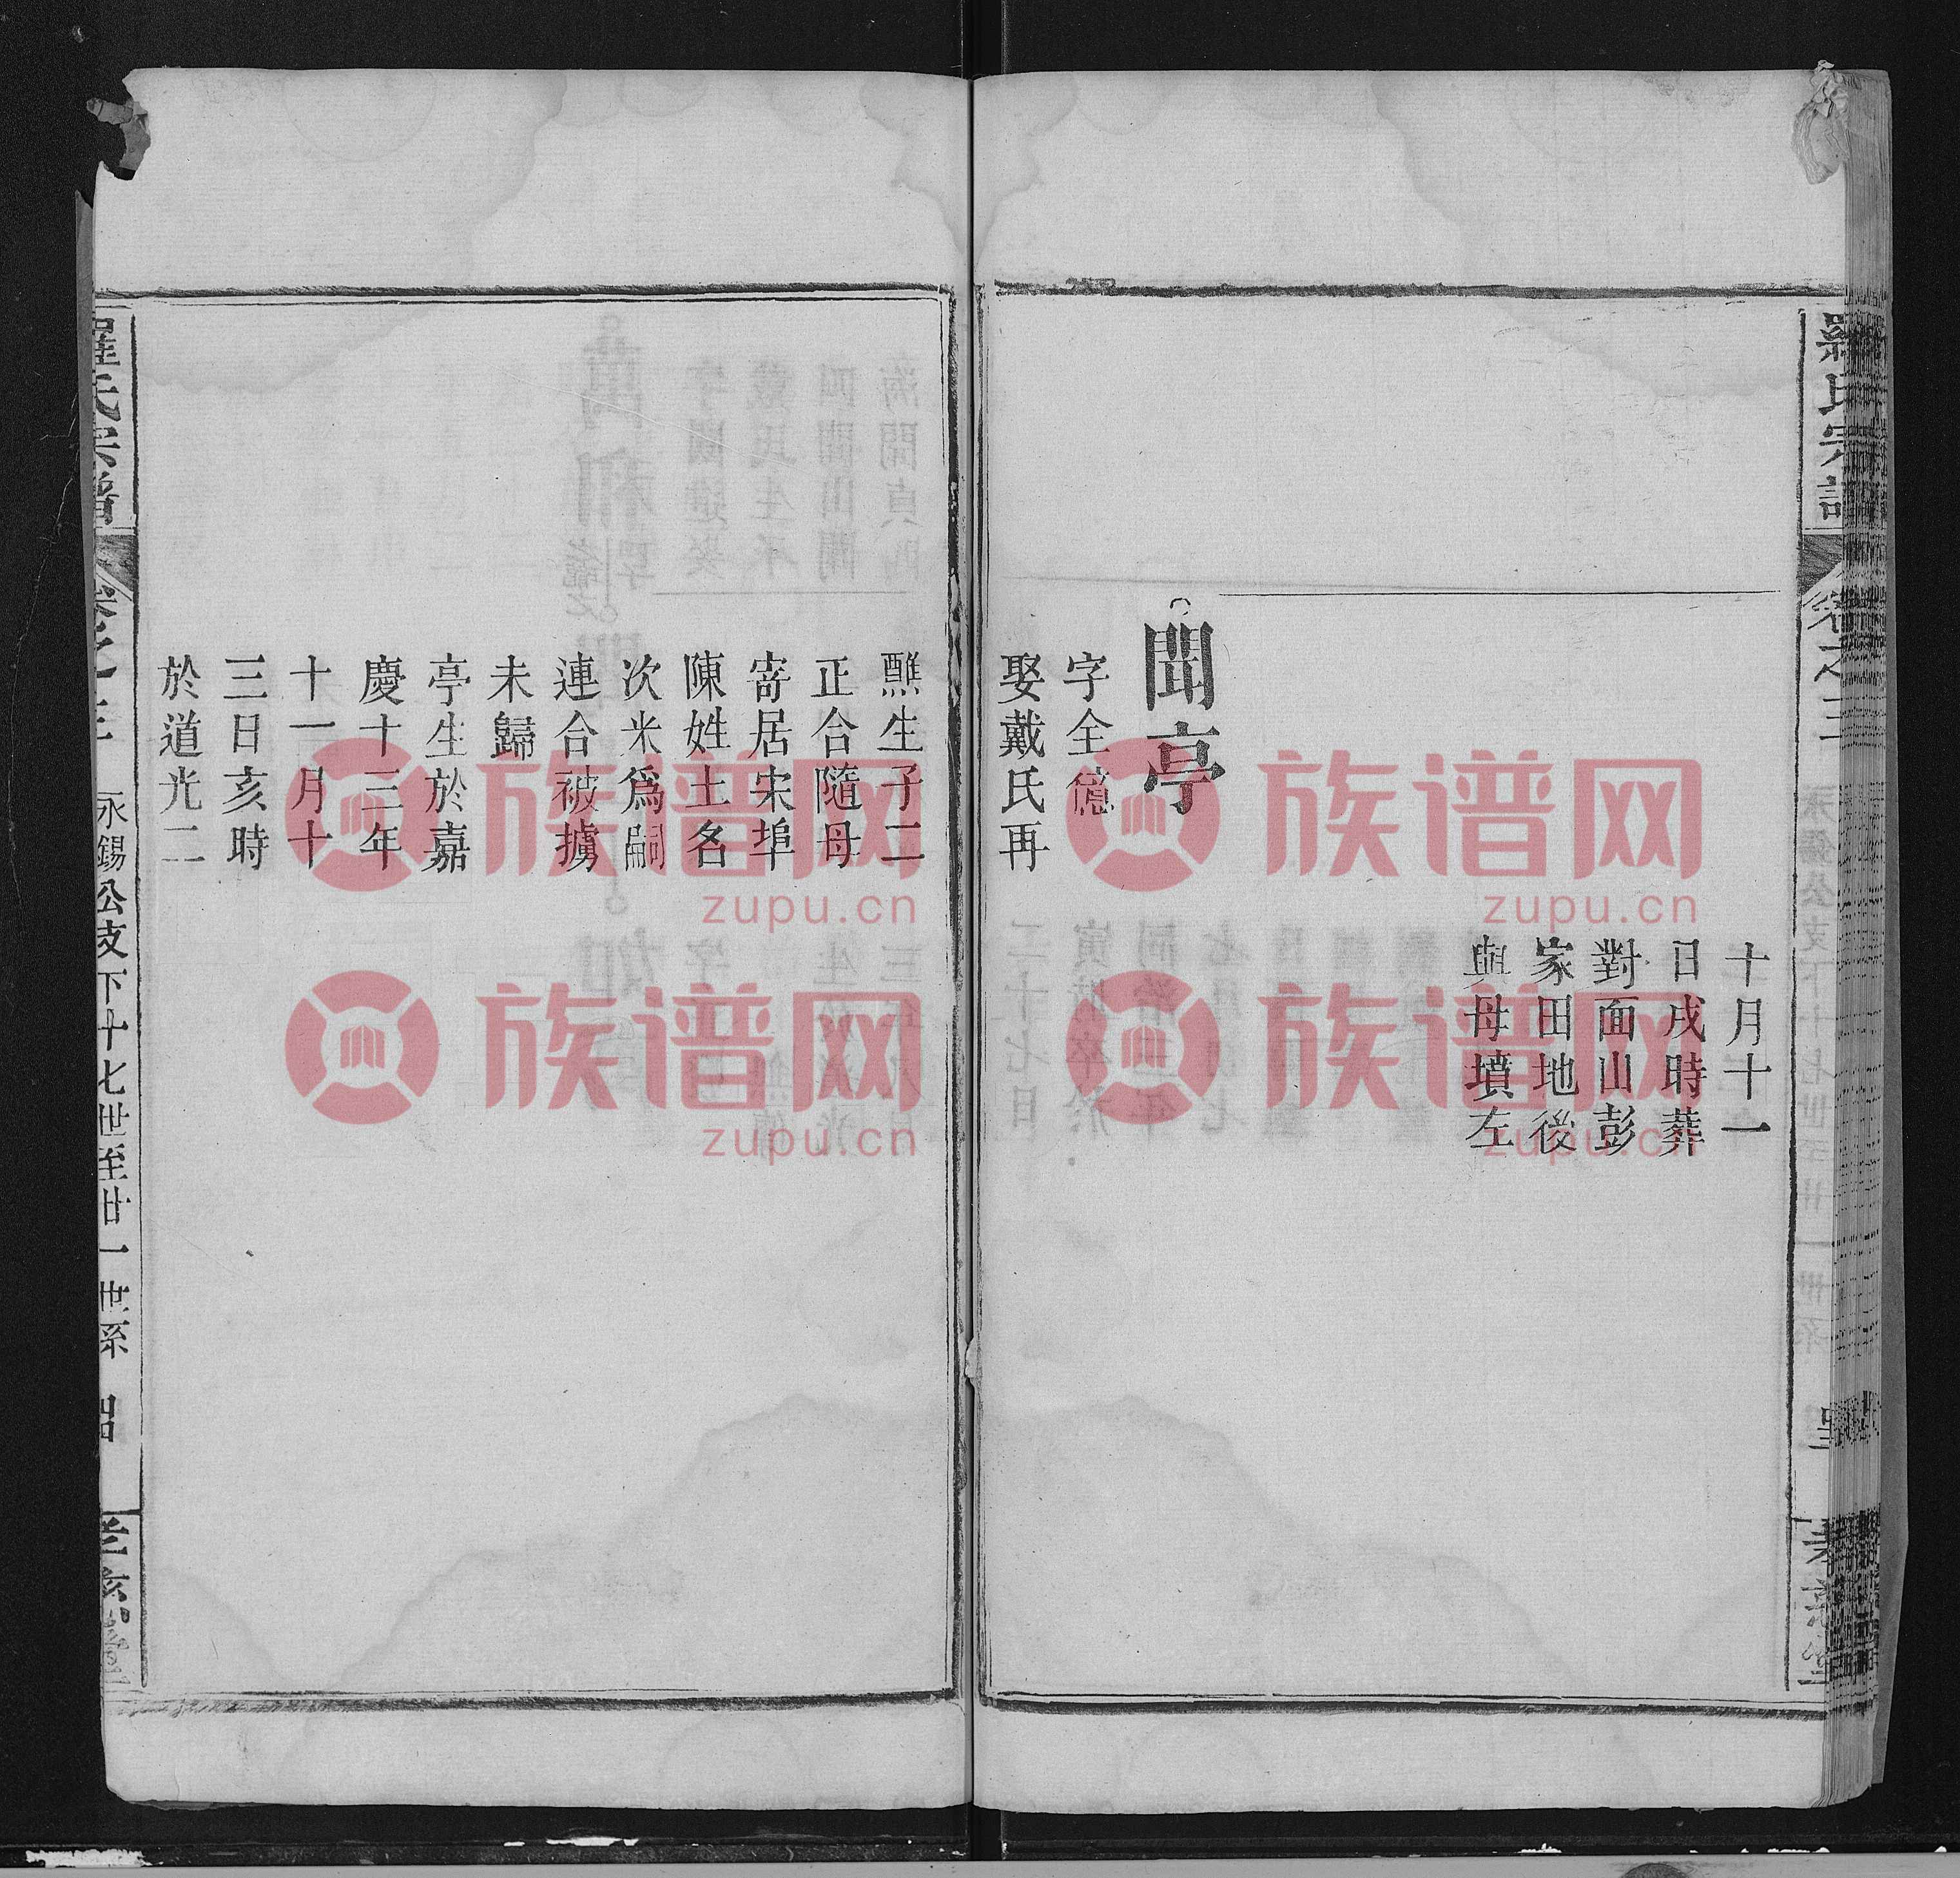 羅氏宗譜
卷之三
十月十一
日戌時葬
對面山彭
家田地後
與母墳左
聞亭
字全德
娶戴氏再
醮生子二
正合隨母
寄居宋埠
陳姓土名
次米爲嗣
連合被擄
未歸
亭生於嘉
慶十三年
十一月十
三日亥時
於道光二
羅氏宗譜
卷之三
永錫公支下十七世至廿一世系
族谱网
zupu.cn
族谱网
zupu.cn
族谱网
zupu.cn
族谱网
zupu.cn